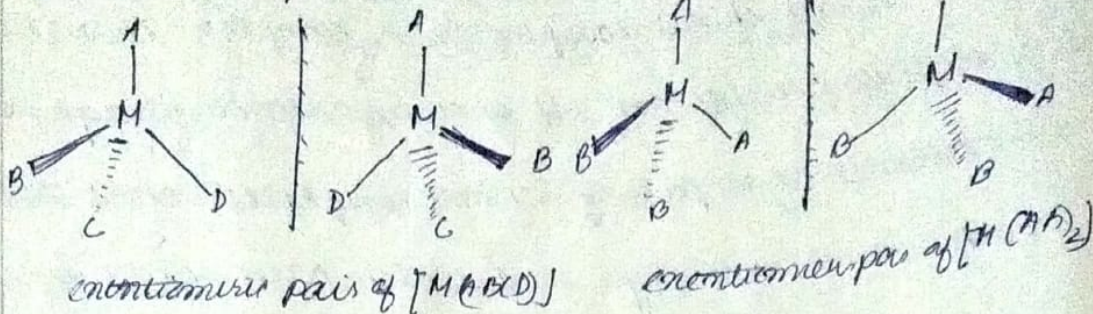 A
M
B
C
D
A
M
D
C
B
A
M
B
B
A
M
A
B
B
enantiomeric pair of [MABCD]
enantiomeric pair of [M(AA)2]